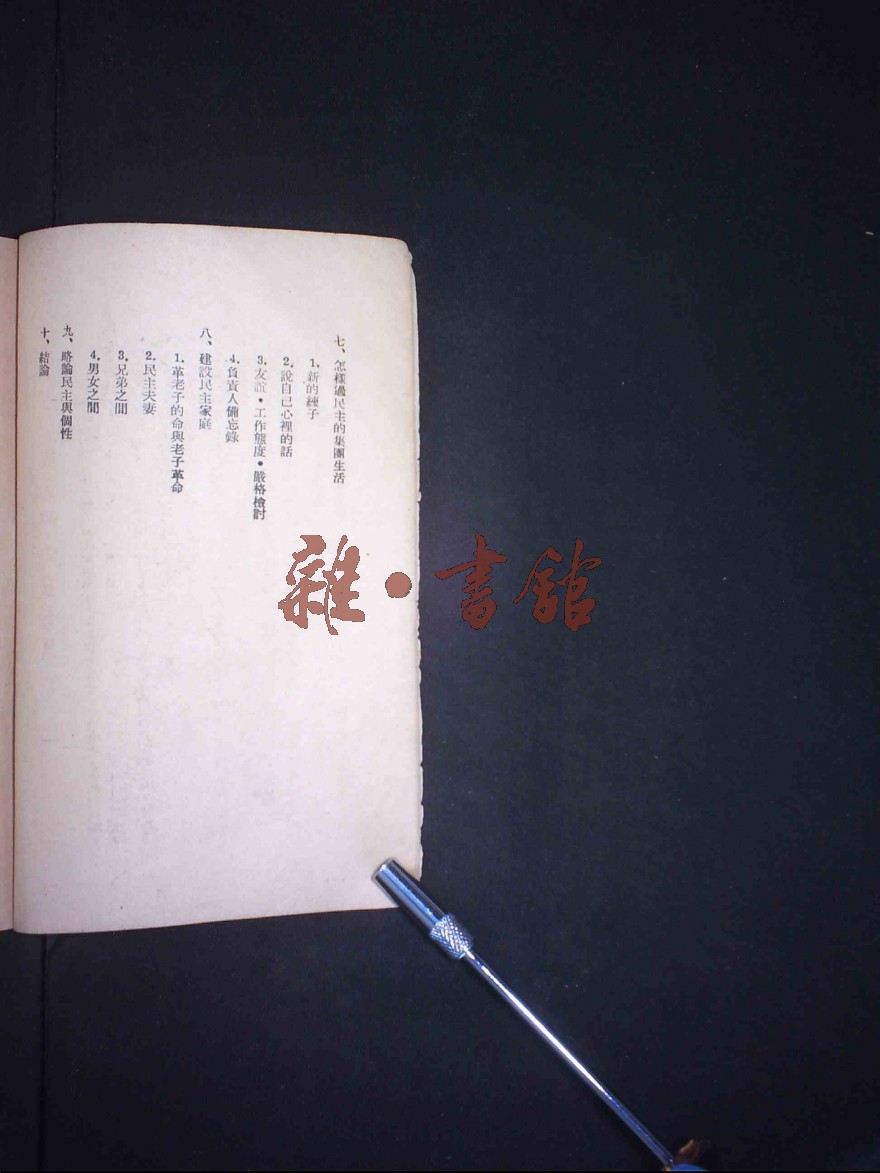 七、怎樣過民主的集團生活
1、新的種子
2.說自己心裡的話
3.友誼·工作態度·嚴格檢討
4.負責人備忘錄
八、建設民主家庭
1.革老子的命與老子革命
2.民主夫妻
3.兄弟之間
4.男女之間
九、略論民主與個性
十、結論
雜·書館